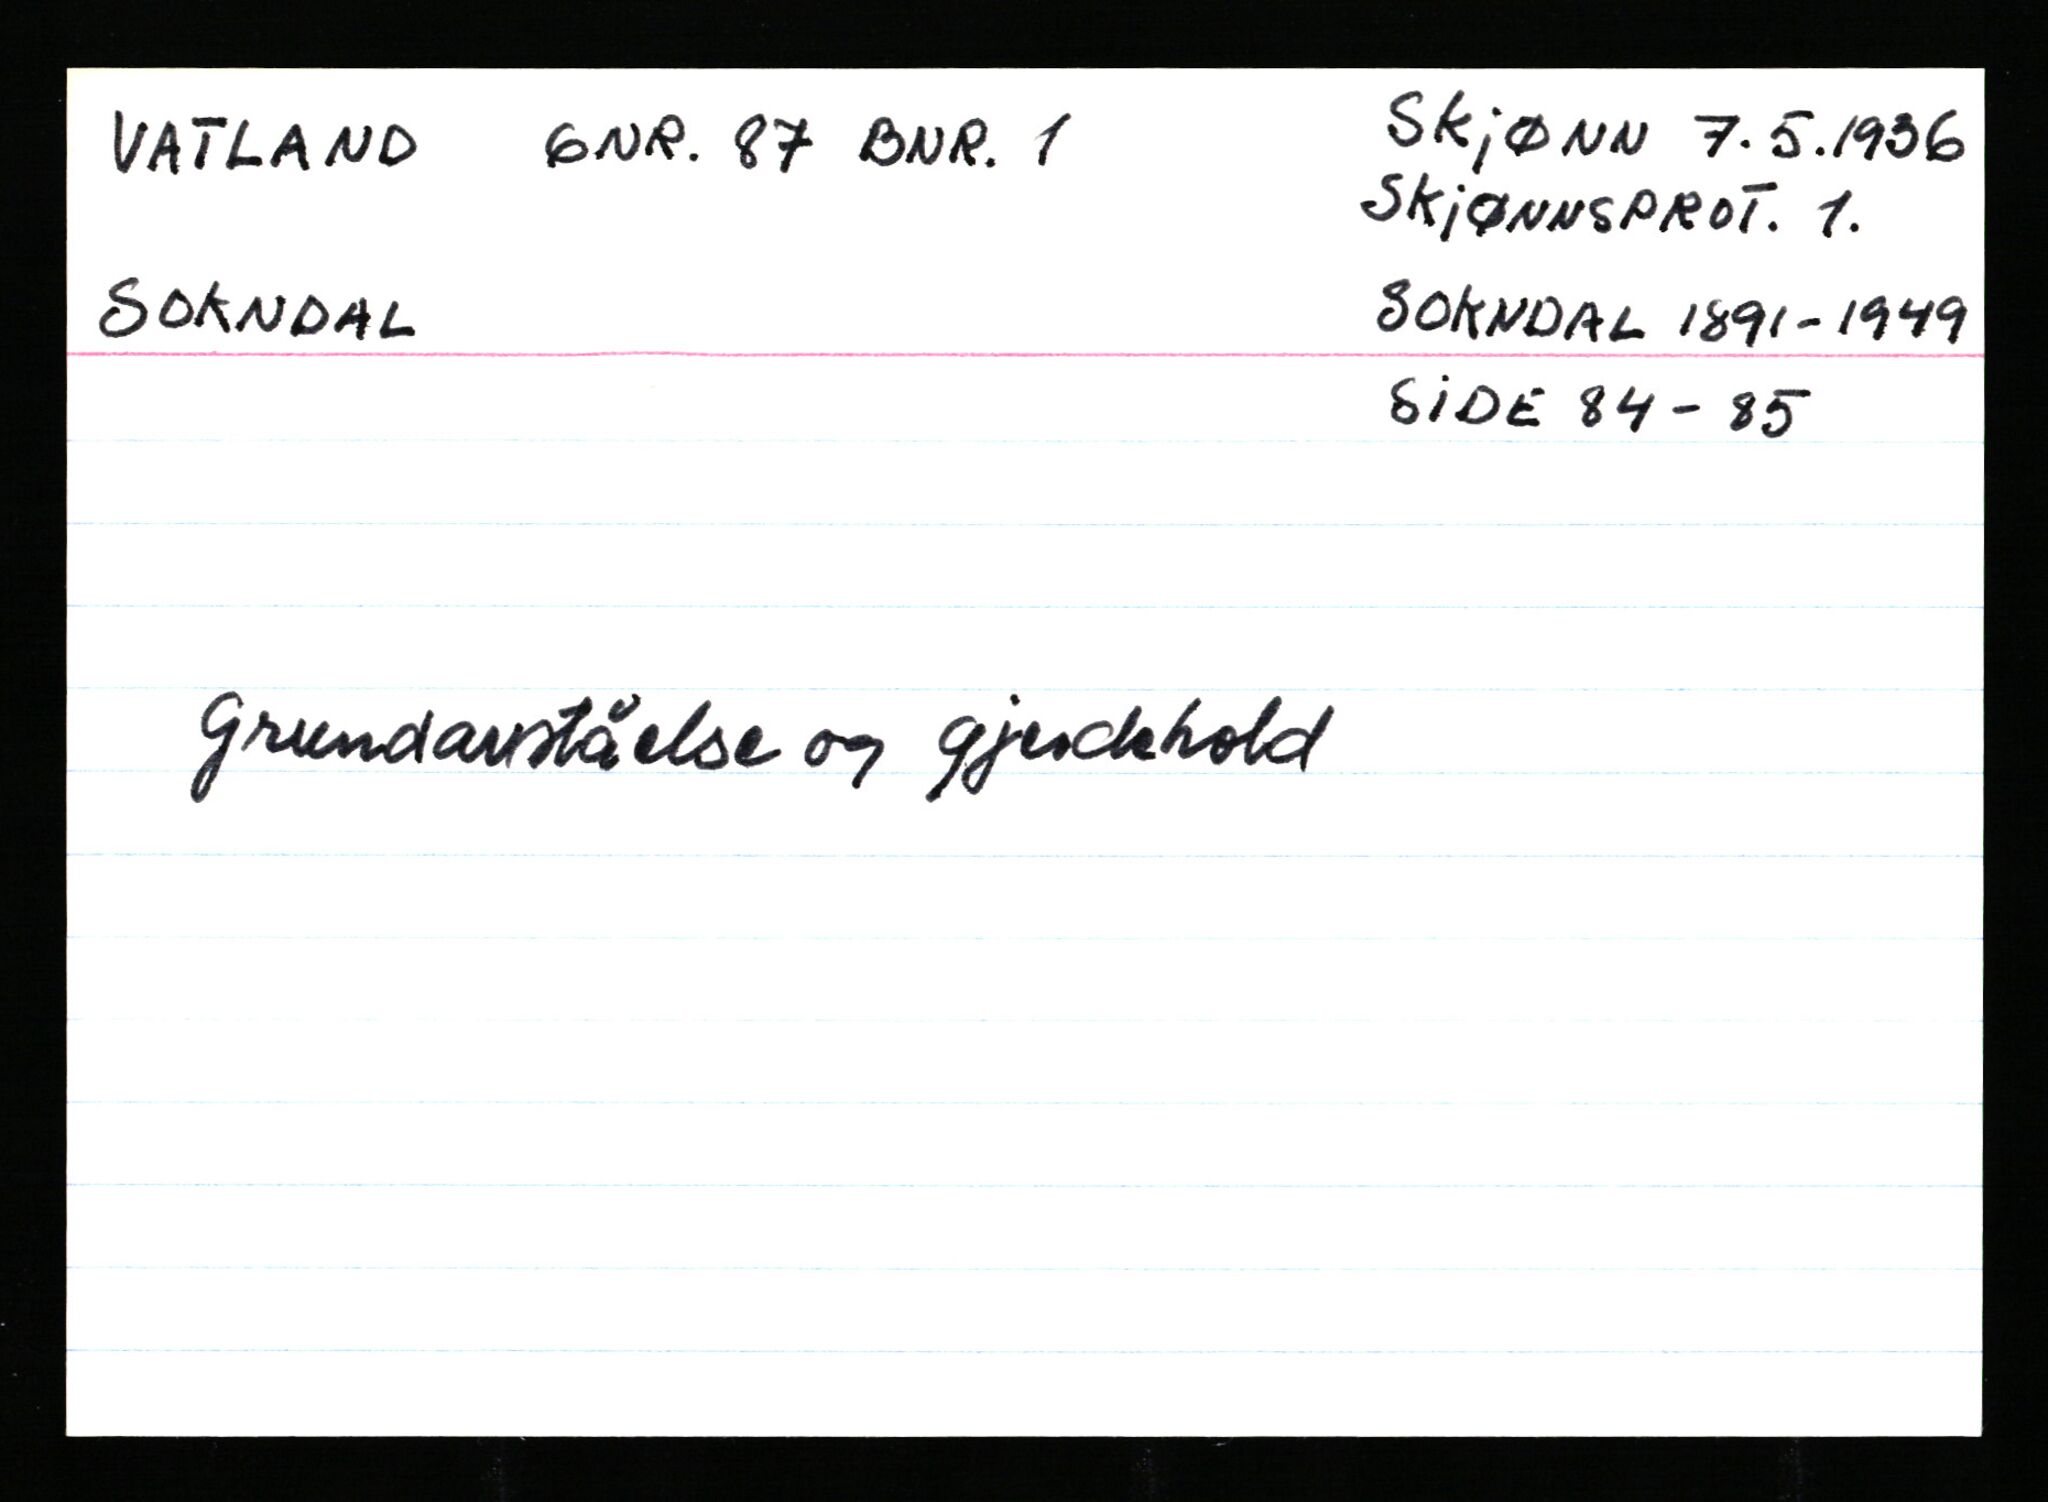 VATLAND GNR. 87 BNR. 1
SKJØNN 7.5.1936
SKJØNNSPROT. 1.
SOKNDAL
SOKNDAL 1891-1949
SIDE 84-85
Grundavståelse og gjerdehold